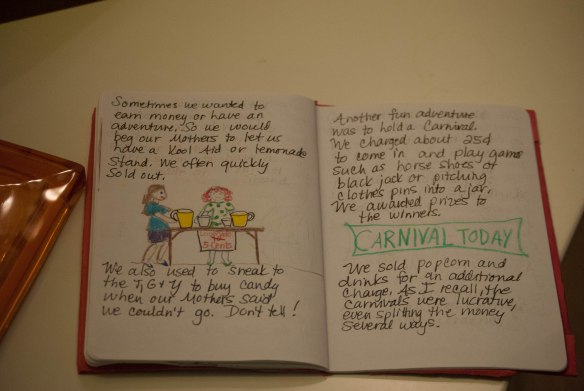 Sometimes we wanted to
earn money or have an
adventure. So we would
beg our Mothers to let us
have a Kool Aid or lemonade
Stand. We often quickly
Sold out.
5 Cents
We also used to sneak to
the T, G & Y to buy candy
when our Mothers said
we couldn't go. Don't tell!
Another fun adventure
was to hold a Carnival.
We charged about 25¢
to come in and play games
such as horse shoes or
black jack or pitching
clothes pins into a jar.
We awarded prizes to
the winners.
CARNIVAL TODAY
We sold popcorn and
drinks for an additional
charge. As I recall, the
Carnivals were lucrative,
even splitting the money
several ways.